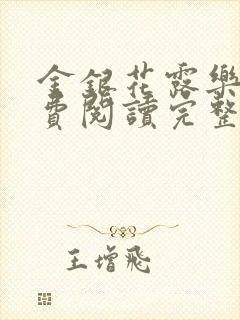 金銀花露樂
費閱讀完整
王增飛